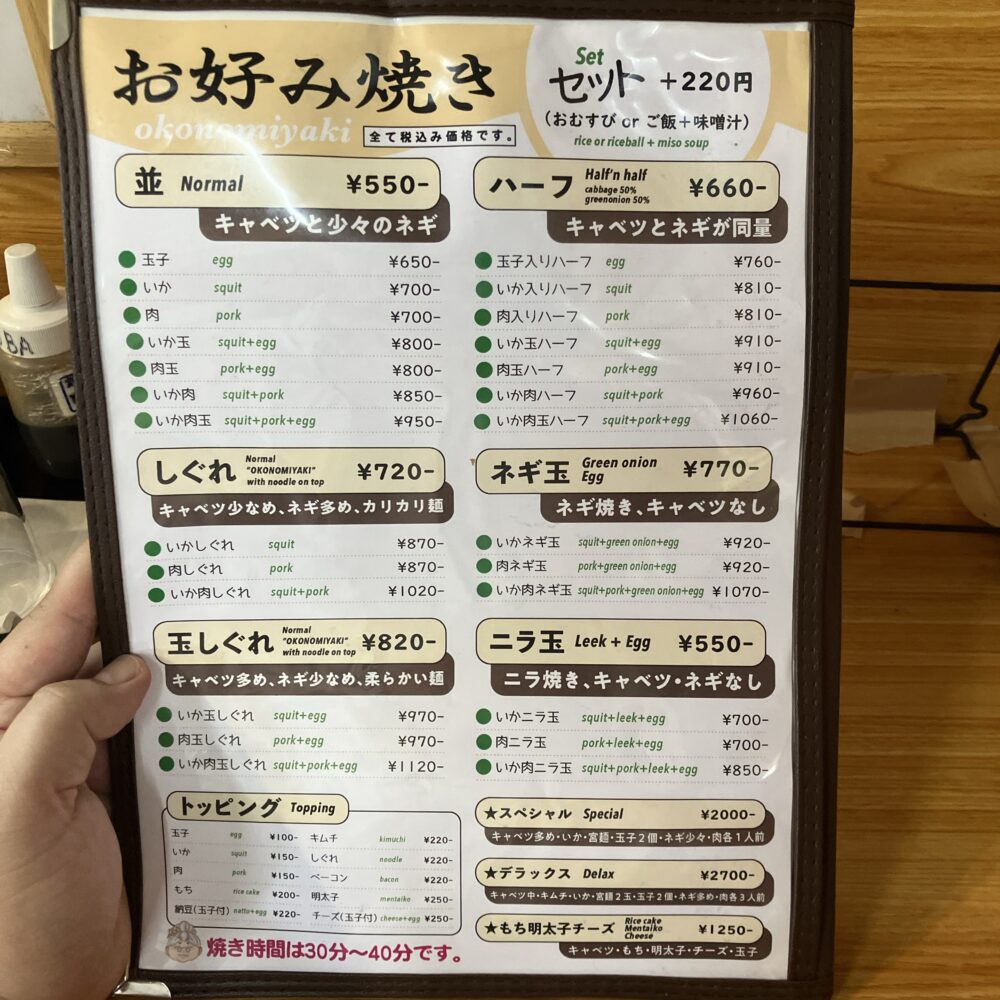 お好み焼き
okonomiyaki
全て税込み価格です。
Set
セット +220円
(おむすび or ご飯+味噌汁)
rice or riceball + miso soup
並 Normal ¥550-
キャベツと少々のネギ
玉子 egg ¥650-
いか squit ¥700-
肉 pork ¥700-
いか玉 squit+egg ¥800-
肉玉 pork+egg ¥800-
いか肉 squit+pork ¥850-
いか肉玉 squit+pork+egg ¥950-
ハーフ Half'n half ¥660-
cabbage 50%
greenonion 50%
キャベツとネギが同量
玉子入りハーフ egg ¥760-
いか入りハーフ squit ¥810-
肉入りハーフ pork ¥810-
いか玉ハーフ squit+egg ¥910-
肉玉ハーフ pork+egg ¥910-
いか肉ハーフ squit+pork ¥960-
いか肉玉ハーフ squit+pork+egg ¥1060-
しぐれ Normal ¥720-
"OKONOMIYAKI"
with noodle on top
キャベツ少なめ、ネギ多め、カリカリ麺
いかしぐれ squit ¥870-
肉しぐれ pork ¥870-
いか肉しぐれ squit+pork ¥1020-
ネギ玉 Green onion ¥770-
Egg
ネギ焼き、キャベツなし
いかネギ玉 squit+green onion+egg ¥920-
肉ネギ玉 pork+green onion+egg ¥920-
いか肉ネギ玉 squit+pork+green onion+egg ¥1070-
玉しぐれ Normal ¥820-
"OKONOMIYAKI"
with noodle on top
キャベツ多め、ネギ少なめ、柔らかい麺
いか玉しぐれ squit+egg ¥970-
肉玉しぐれ pork+egg ¥970-
いか肉玉しぐれ squit+pork+egg ¥1120-
ニラ玉 Leek + Egg ¥550-
ニラ焼き、キャベツ・ネギなし
いかニラ玉 squit+leek+egg ¥700-
肉ニラ玉 pork+leek+egg ¥700-
いか肉ニラ玉 squit+pork+leek+egg ¥850-
トッピング Topping
玉子 egg ¥100-
いか squit ¥150-
肉 pork ¥150-
もち rice cake ¥200-
納豆(玉子付) natto+egg ¥220-
キムチ kimuchi ¥220-
しぐれ noodle ¥220-
ベーコン bacon ¥220-
明太子 mentaiko ¥250-
チーズ(玉子付) cheese+egg ¥250-
焼き時間は30分〜40分です。
★スペシャル Special ¥2000-
キャベツ多め・いか・宮麺・玉子2個・ネギ少々・肉各1人前
★デラックス Delax ¥2700-
キャベツ中・キムチ・いか・宮麺2玉・玉子2個・ネギ多め・肉各3人前
★もち明太子チーズ Rice cake ¥1250-
Mentaiko
Cheese
キャベツ・もち・明太子・チーズ・玉子
BA